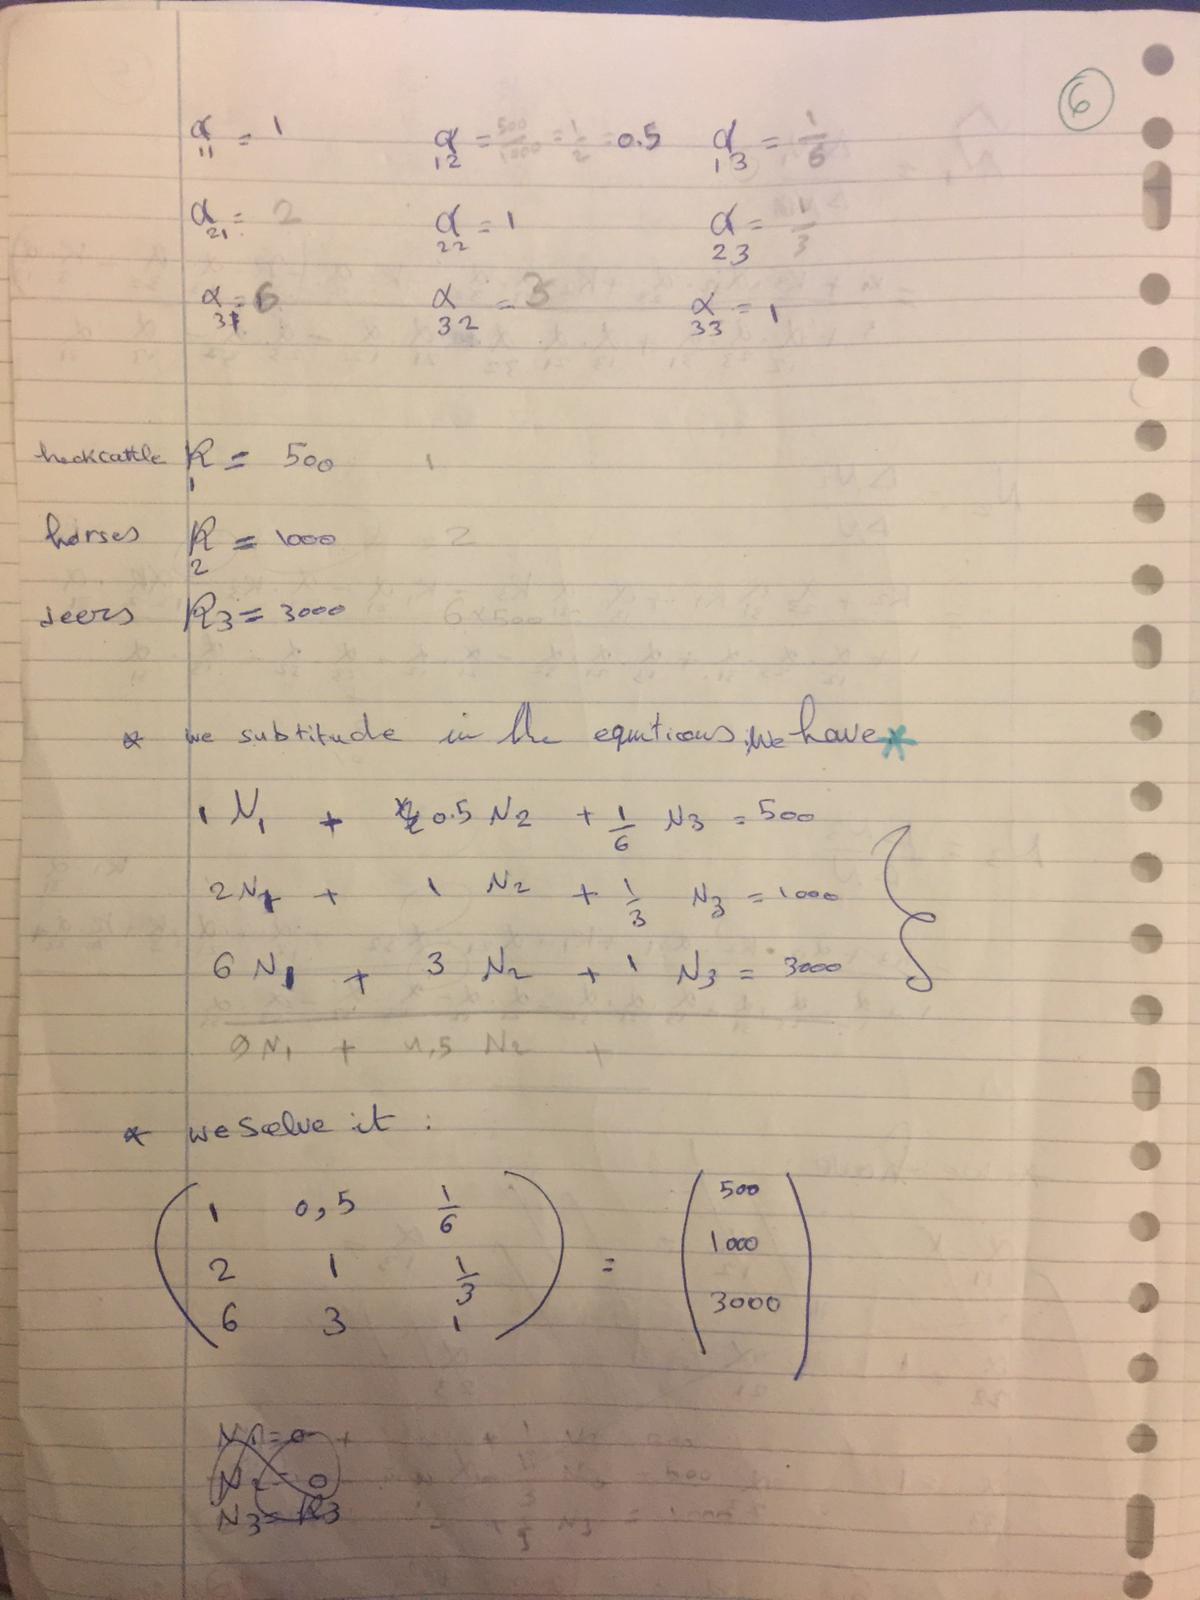 6
α11 = 1 α12 = 500/1000 = 1/2 = 0.5 α13 = 1/6
α21 = 2 α22 = 1 α23 = 1/3
α31 = 6 α32 = 3 α33 = 1
heckcattle K1 = 500 1
horses K2 = 1000 2
deers K3 = 3000 6x500
* we subtitude in the equations, we have *
1 N1 + 0.5 N2 + 1/6 N3 = 500
2N1 + 1 N2 + 1/3 N3 = 1000
6 N1 + 3 N2 + 1 N3 = 3000
9N1 + 4,5 N2 +
* we solve it :
1 0,5 1/6 500
2 1 1/3 = 1000
6 3 1 3000
N1 = 0
N2 = 0
N3 = K3